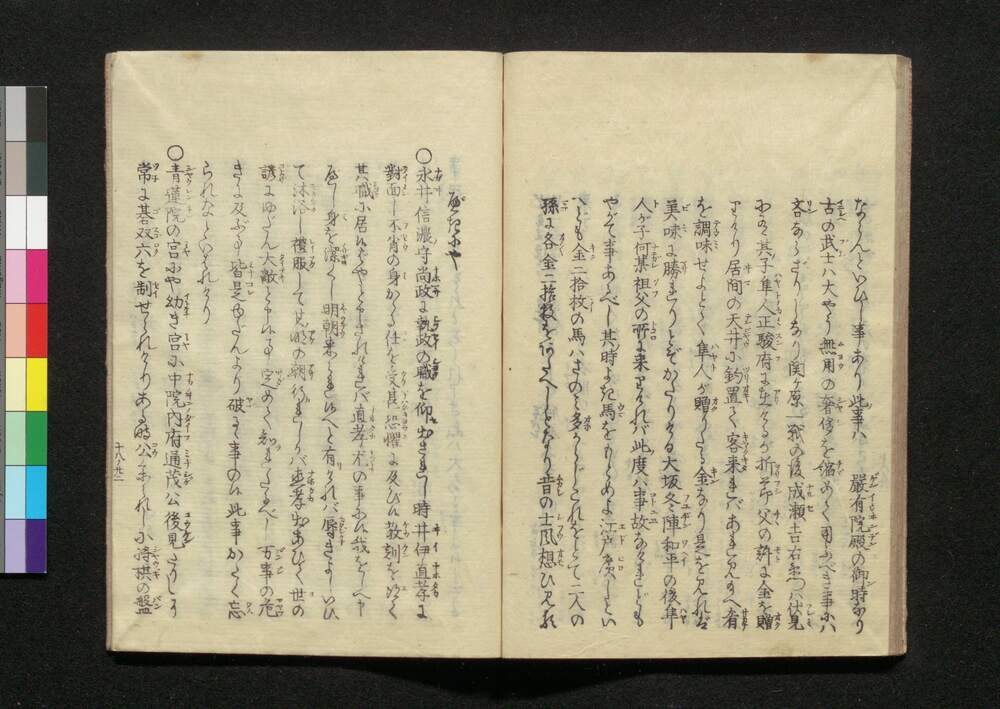 なるらんといひし事あり此事ハ 嚴有院殿の御時なり
古の武士ハ大やう無用の奢侈を省きて用ふべき事にハ
吝ならざりしなり関ケ原一戦の後成瀬吉右衛門ハ伏見
に其子隼人正駿府に在ける折節父の許に金を贈
りけり居間の天井に釣置て客来れバあれ見給へ肴
を調味せよとて隼人が贈りたる金なり是を見れバ
美味に勝れりとぞかたりける大坂冬陣和平の後隼
人が子何某祖父の所に来りけれバ此度ハ事故なけれども
やがて事あるべし其時よき馬をもとめよ江戸廣しとい
へども金二拾枚の馬ハさのミ多からじこれをとて二人の
孫に各金二拾枚をあたへしとなり昔の士風想ひ見る
べきにや
○永井信濃守尚政に執政の職を仰出されし時井伊直孝に
對面し不肖の身かゝる仕を受甚恐懼に及びぬ教訓を
其職に居給ハ
べし身を潔くし明朝来られ給へと有けれバ辱きよしいひ
て沐浴し禮服して其明の朝行れしかバ直孝出あひて世の
諺にゆだん大敵といふ事定めて知れたるべし万事の危
きに及ぶ事皆是ゆだんより破るゝ事のミ此事かたく忘
られなといはれけり
○青蓮院の宮にや幼き宮に中院内府通茂公後見たりしに
常に碁双六を制せられけりある時公まゐられしに将棋の盤
十八ノ廿二